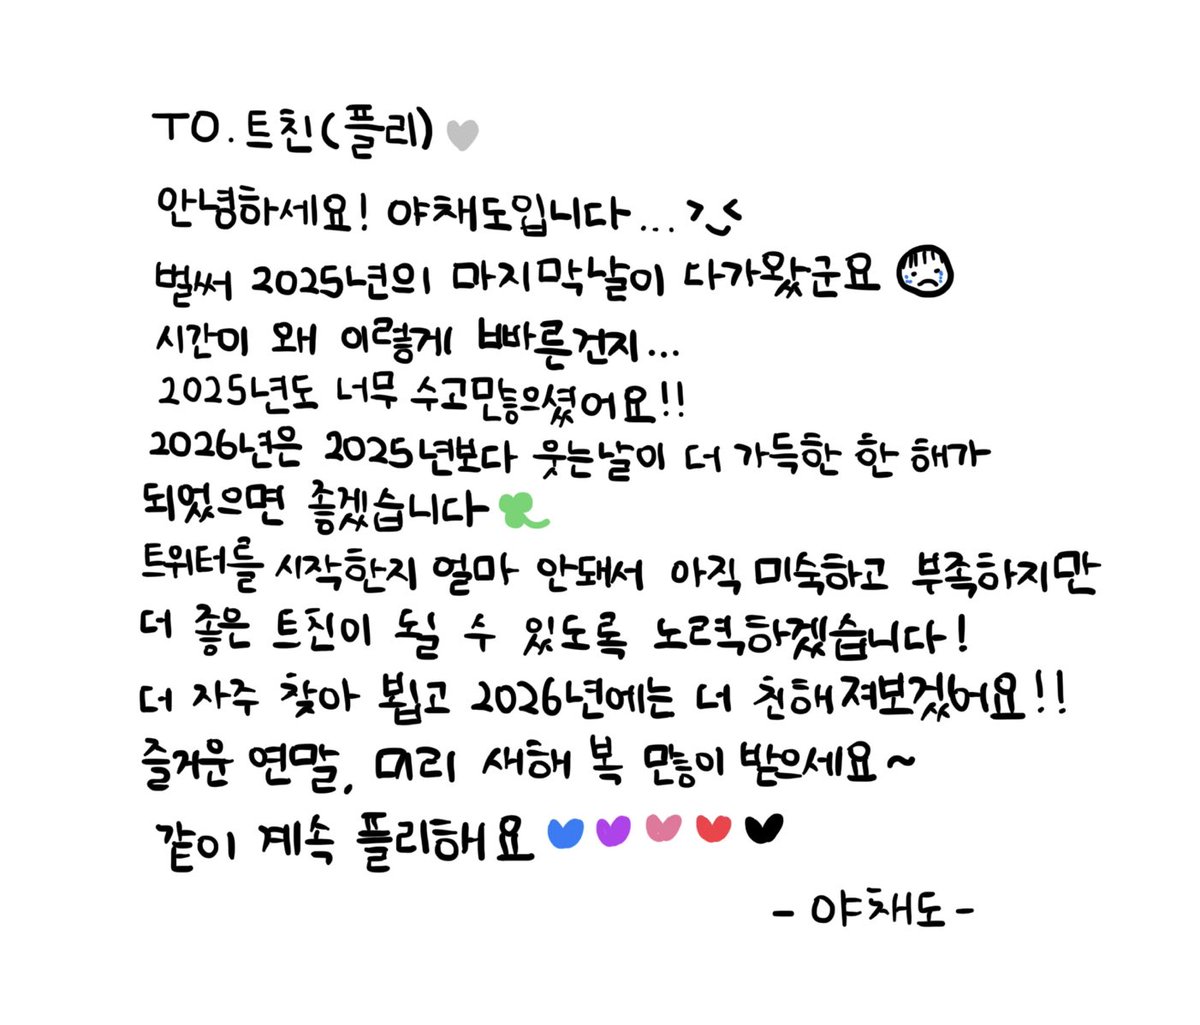 TO. 트친(플리)
안녕하세요! 야채도입니다...
벌써 2025년의 마지막날이 다가왔군요
시간이 왜 이렇게 빠른건지...
2025년도 너무 수고많으셨어요!!
2026년은 2025년보다 웃는날이 더 가득한 한 해가
되었으면 좋겠습니다
트위터를 시작한지 얼마 안돼서 아직 미숙하고 부족하지만
더 좋은 트친이 될 수 있도록 노력하겠습니다!
더 자주 찾아 뵙고 2026년에는 더 친해져보겠어요!!
즐거운 연말, 미리 새해 복 많이 받으세요~
같이 계속 플리해요
- 야채도 -